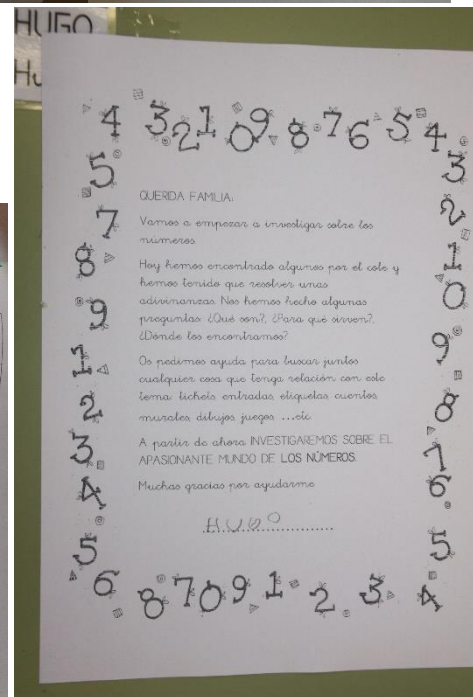 HUGO
4 3 2 1 0 9 8 7 6 5 4
5 7 8 9 1 2 3 4 5 6
3 2 1 0 9 8 7 6 5 4
QUERIDA FAMILIA:
Vamos a empezar a investigar sobre los
números
Hoy hemos encontrado algunos por el cole y
hemos tenido que resolver unas
adivinanzas. Nos hemos hecho algunas
preguntas: ¿Qué son?, ¿Para qué sirven?,
¿Dónde los encontramos?
Os pedimos ayuda para buscar juntos
cualquier cosa que tenga relación con este
tema: tickets entradas etiquetas cuentos
murales dibujos juegos ...etc
A partir de ahora INVESTIGAREMOS SOBRE EL
APASIONANTE MUNDO DE LOS NÚMEROS.
Muchas gracias por ayudarme
HUGO
8 7 0 9 1 2 3